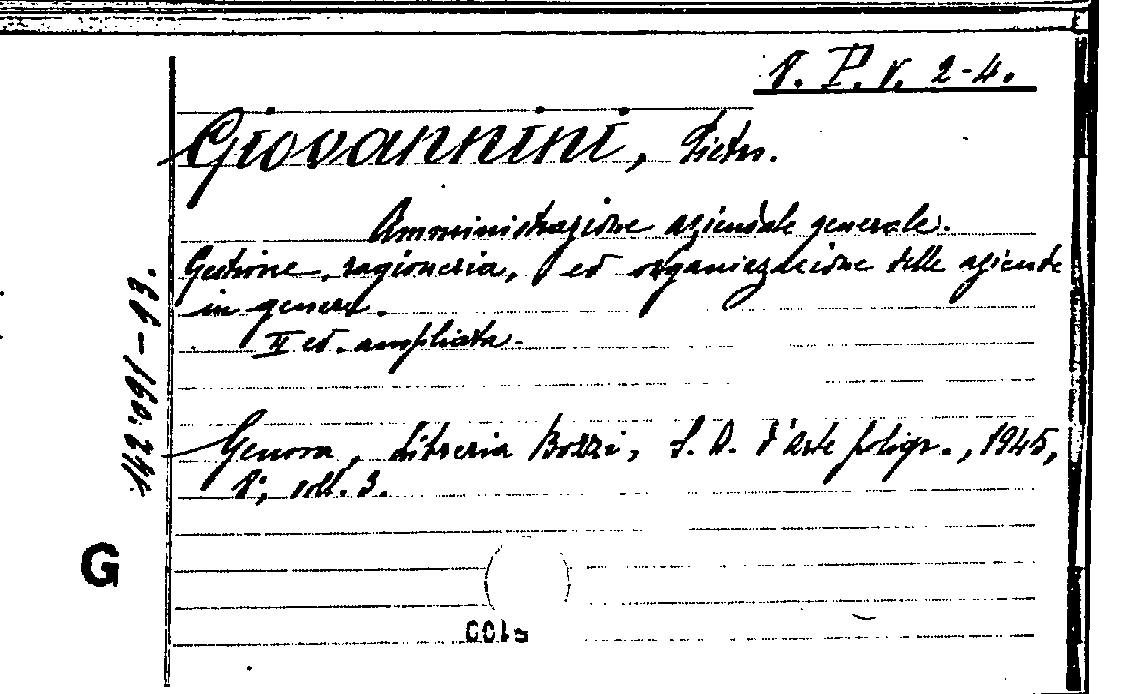 V. P. V. 2-4.
Giovannini, Pietro.
Amministrazione aziendale generale.
Gestione, ragioneria, ed organizzazione delle aziende
in genere.
II ed. ampliata.
Genova, Libreria Bozzi, S. A. d'Arte poligr., 1945,
8°, voll. 3.
142'091-93.
G